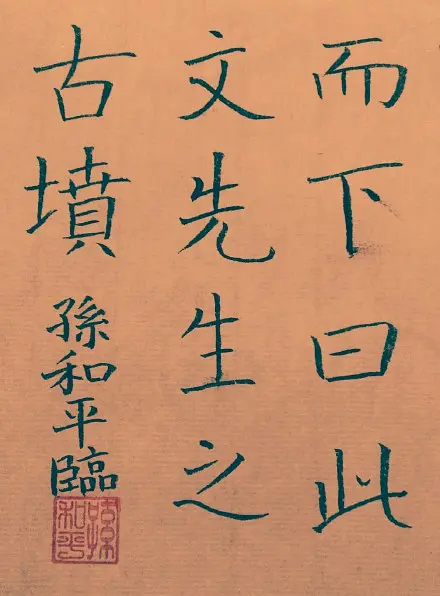 而下曰此
文先生之
古墳
孫和平臨
孫和平